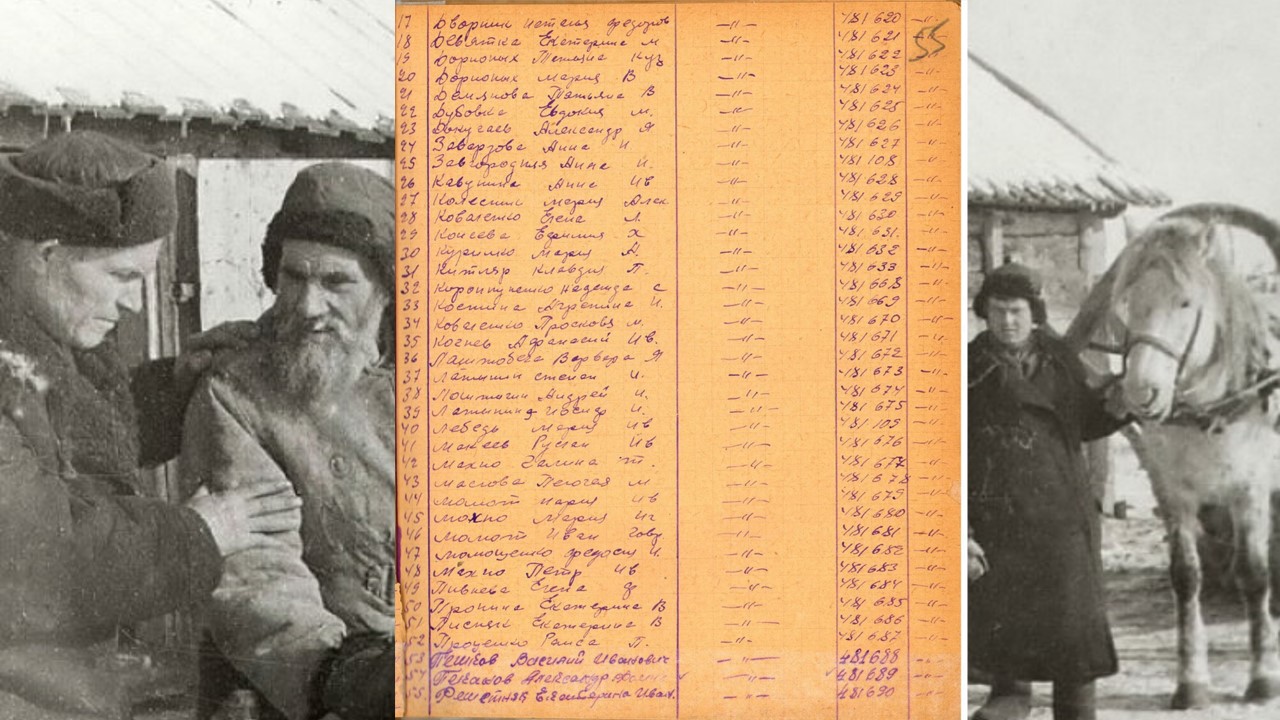 17 Дворник Наталья Федоров —"— 481 620 —"—
18 Девятка Екатерина М —"— 481 621 —"— 55
19 Дорионых Татьяна Куз —"— 481 622 —"—
20 Дорионых Мария В —"— 481 623 —"—
21 Демянова Татьяна В —"— 481 624 —"—
22 Дубовка Евдокия М. —"— 481 625 —"—
23 Докучаев Александр Я —"— 481 626 —"—
24 Заварзова Анна И —"— 481 627 —"—
25 Завгородняя Анна И. —"— 481 108 —"—
26 Кавунина Анна Ив —"— 481 628 —"—
27 Колесник Мария Алек —"— 481 629 —"—
28 Коваленко Елена Л. —"— 481 630 —"—
29 Х —"— 481 631 —"—
30 Куринко Мария А. —"— 481 632 —"—
31 Клавдия П. —"— 481 633 —"—
32 Надежда С —"— 481 668 —"—
33 Костина И. —"— 481 669 —"—
34 Коваленко Просковя М. —"— 481 670 —"—
35 Афанасий Ив. —"— 481 671 —"—
36 Варвара Я —"— 481 672 —"—
37 Лапынин Степан И. —"— 481 673 —"—
38 Андрей И. —"— 481 674 —"—
39 И. —"— 481 675 —"—
40 Лебедь Мария Ив —"— 481 109 —"—
41 Макеев Ив —"— 481 676 —"—
42 Махно Галина Т. —"— 481 677 —"—
43 Маслова Пелагея М —"— 481 678 —"—
44 Мамот Мария Ив —"— 481 679 —"—
45 Махно Мария Иг —"— 481 680 —"—
46 Мамот Иван —"— 481 681 —"—
47 Момощенко Федосия И. —"— 481 682 —"—
48 Махно Петр Ив —"— 481 683 —"—
49 Пивнева Елена Ф —"— 481 684 —"—
50 Пронина Екатерина В —"— 481 685 —"—
51 Писняк Екатерина В —"— 481 686 —"—
52 Проценко Раиса П. —"— 481 687 —"—
53 Пешков Василий Иванович —"— 481688 —"—
54 Александр —"— 481689 —"—
55. Решетняк Екатерина Иван. —"— 481690 —"—